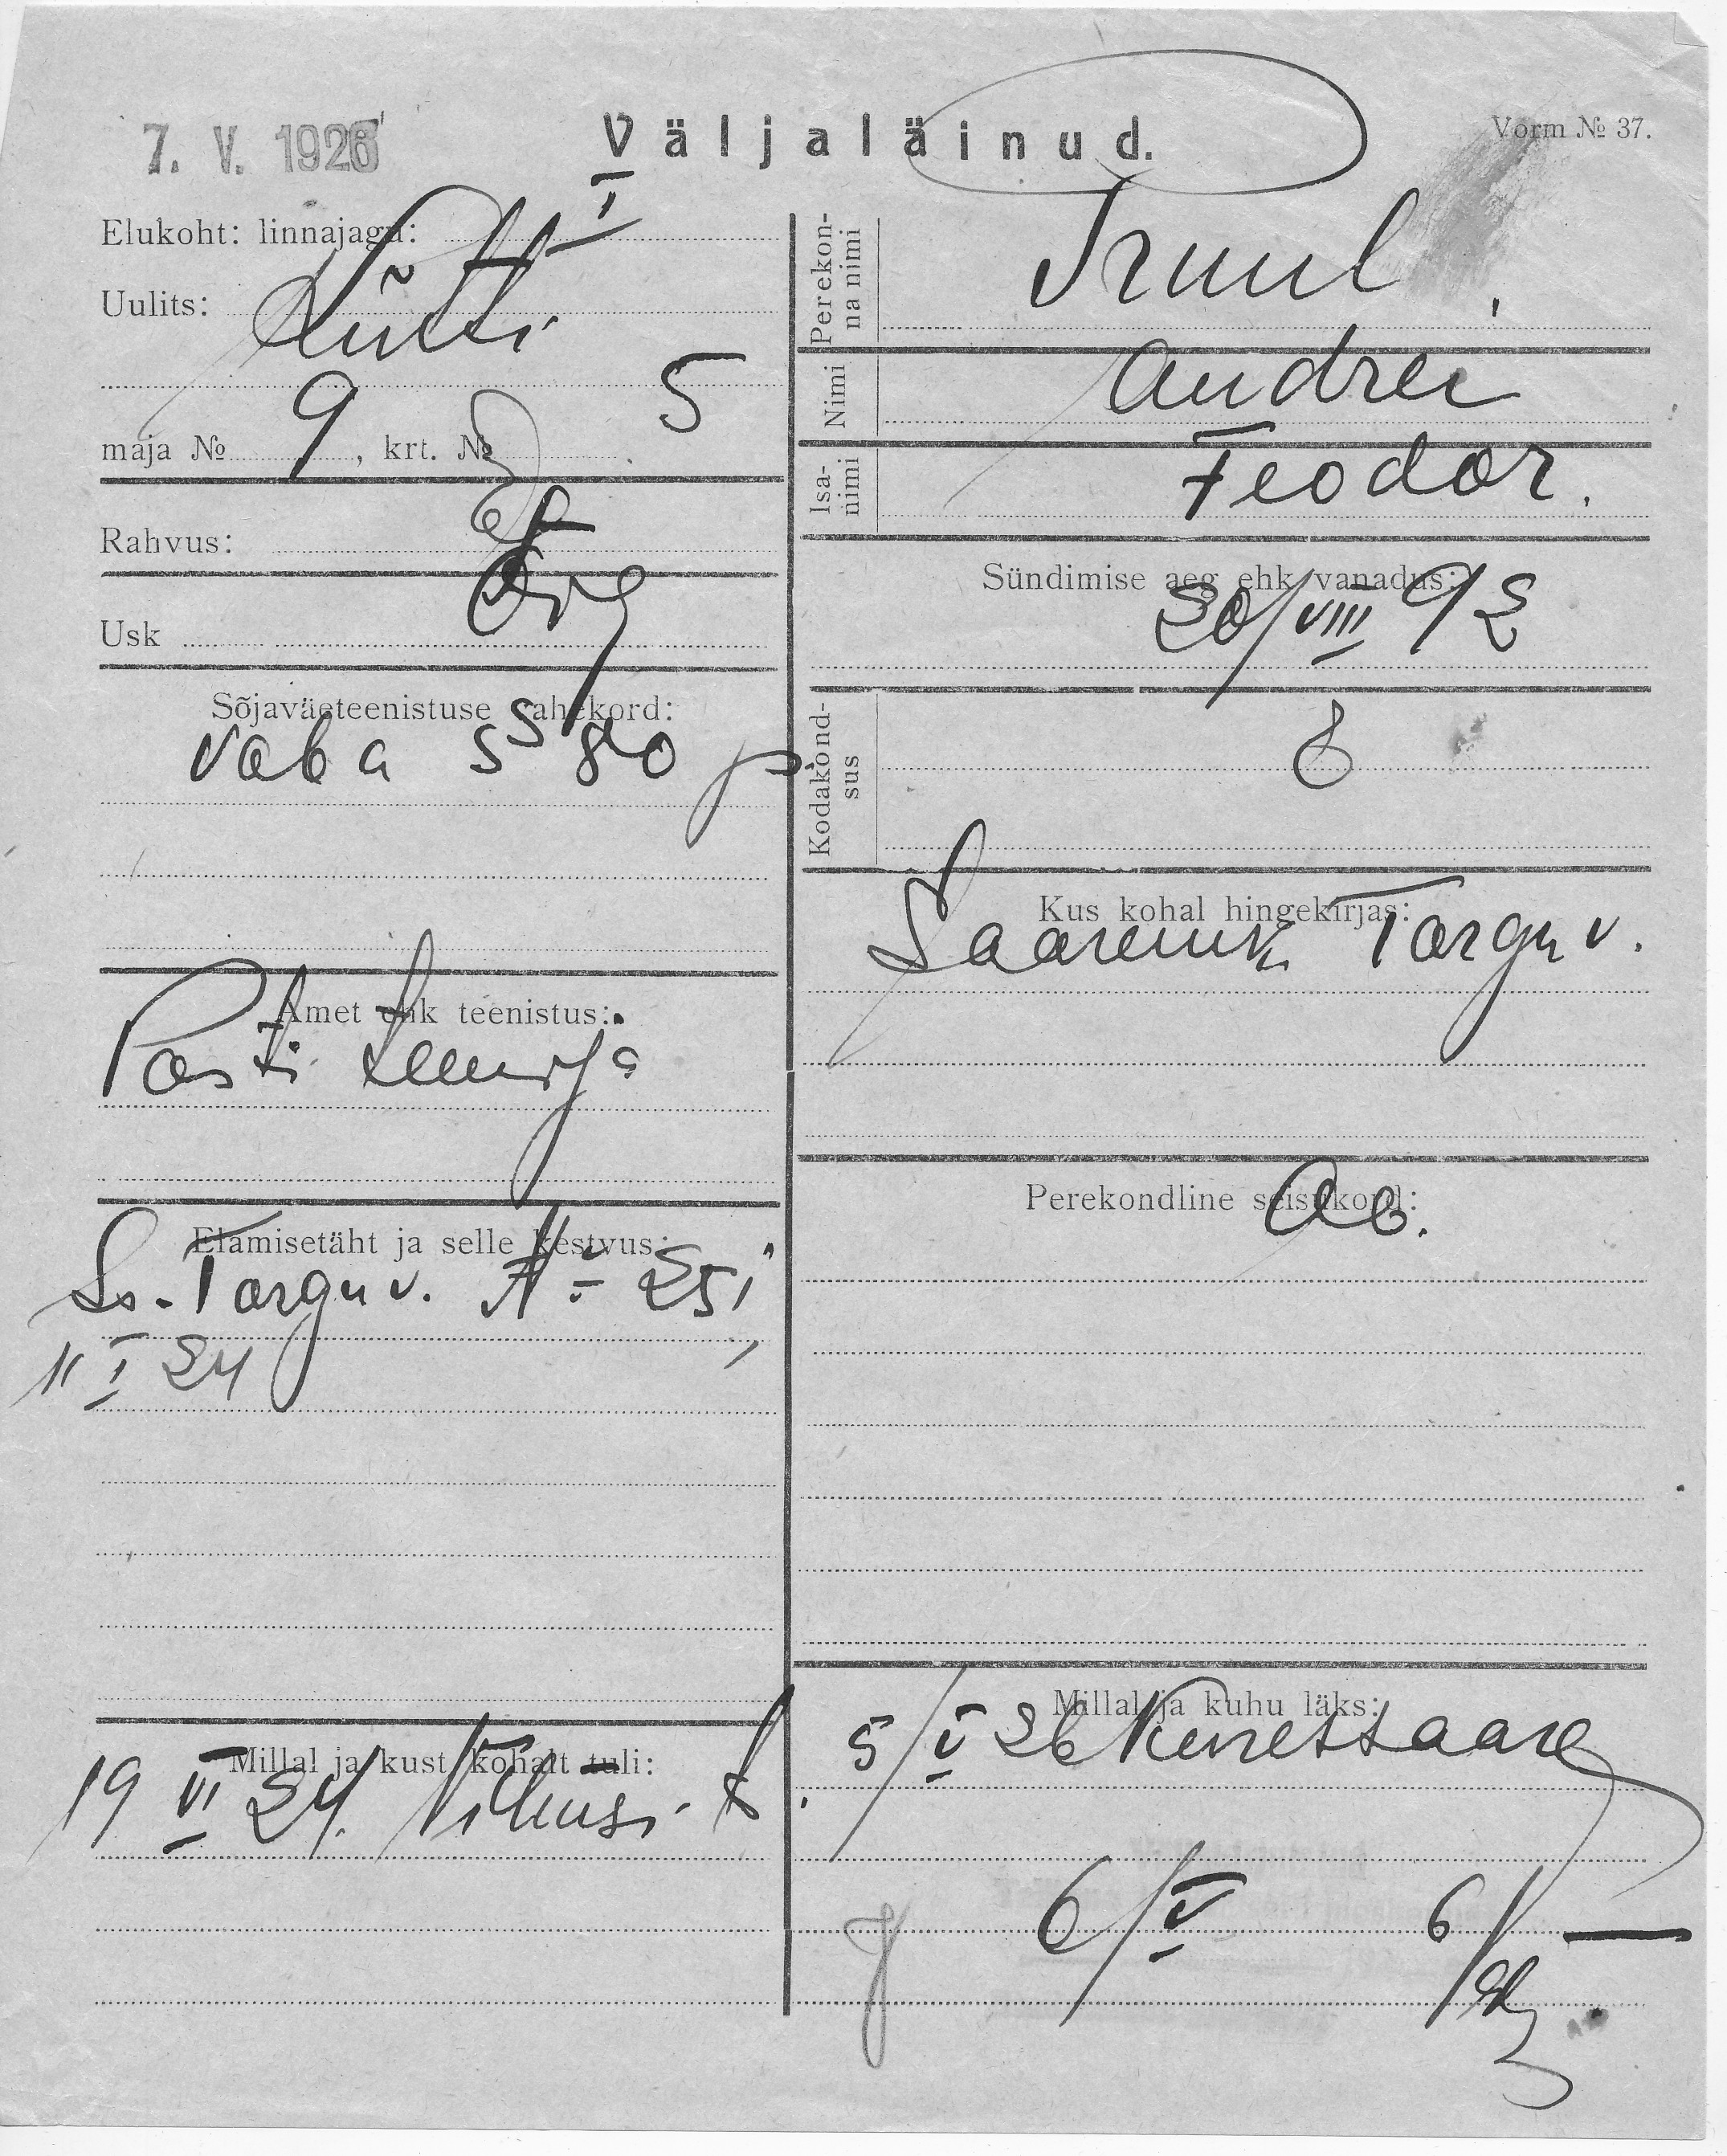 7. V. 1926
Väljaläinud.
Vorm № 37.
Elukoht: linnajagu: I
Uulits: Küütri
maja № 9, krt. № 5
Rahvus:
Usk
Sõjaväeteenistuse vahekord:
Vaba § 80 p
Amet ehk teenistus:
Posti teenija
Elamisetäht ja selle kestvus:
Ss. Torgu v. № 251,
11 I 24
Millal ja kust kohalt tuli:
19 VI 24.
Perekonna nimi
Truul,
Nimi
Andrei
Isanimi
Feodor.
Sündimise aeg ehk vanadus:
20/VIII 92
Kodakondsus
Kus kohal hingekirjas:
Saarema Torgu v.
Perekondline seisukord:
Ab.
Millal ja kuhu läks:
5/V 26 Kuressaare
6/V